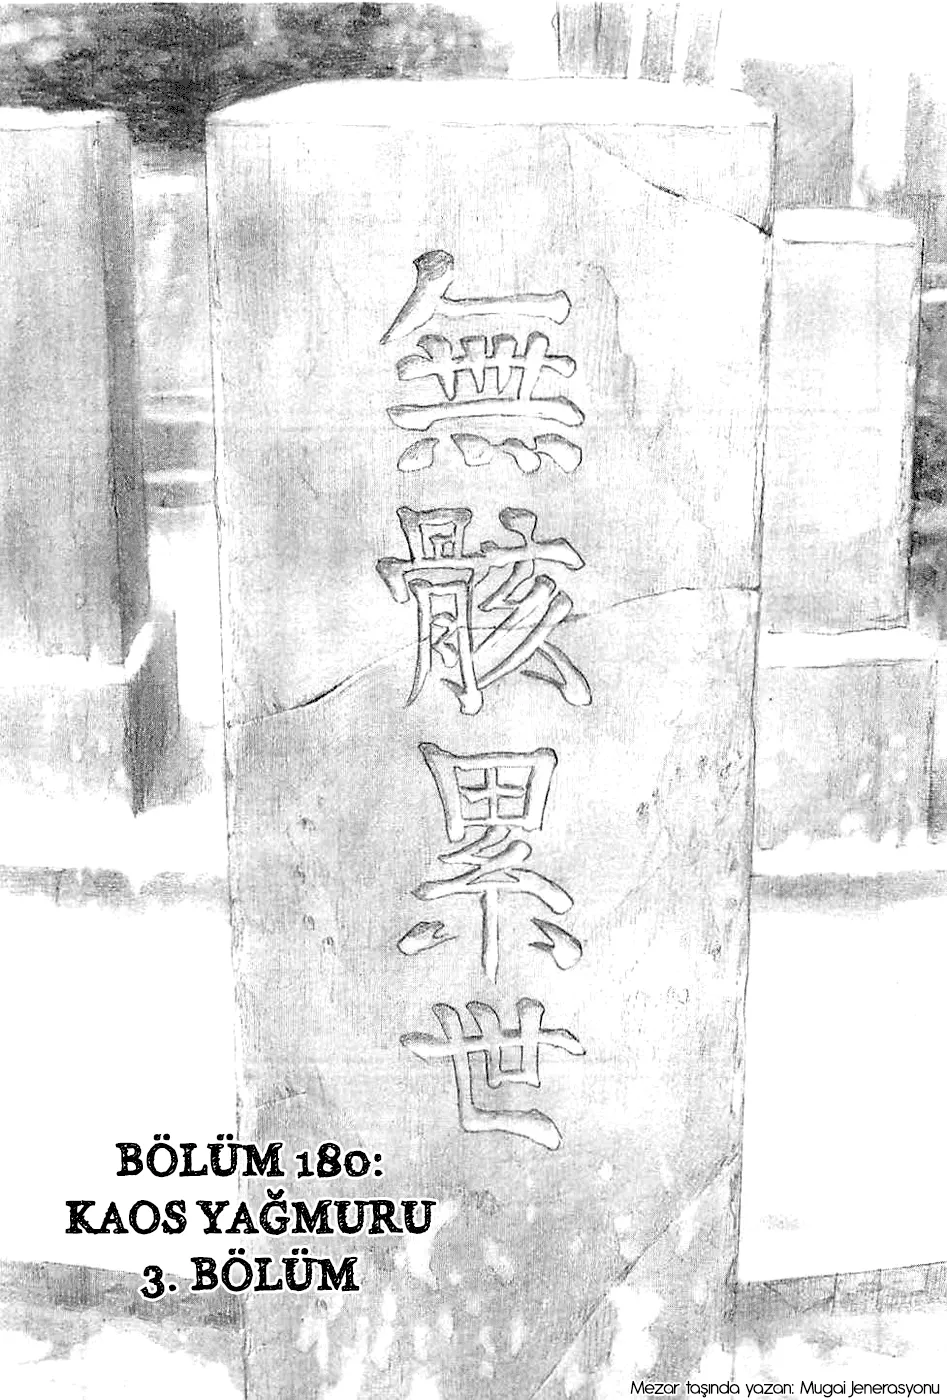 無骸累世
BÖLÜM 180:
KAOS YAĞMURU
3. BÖLÜM
Mezar taşında yazan: Mugai Jenerasyonu